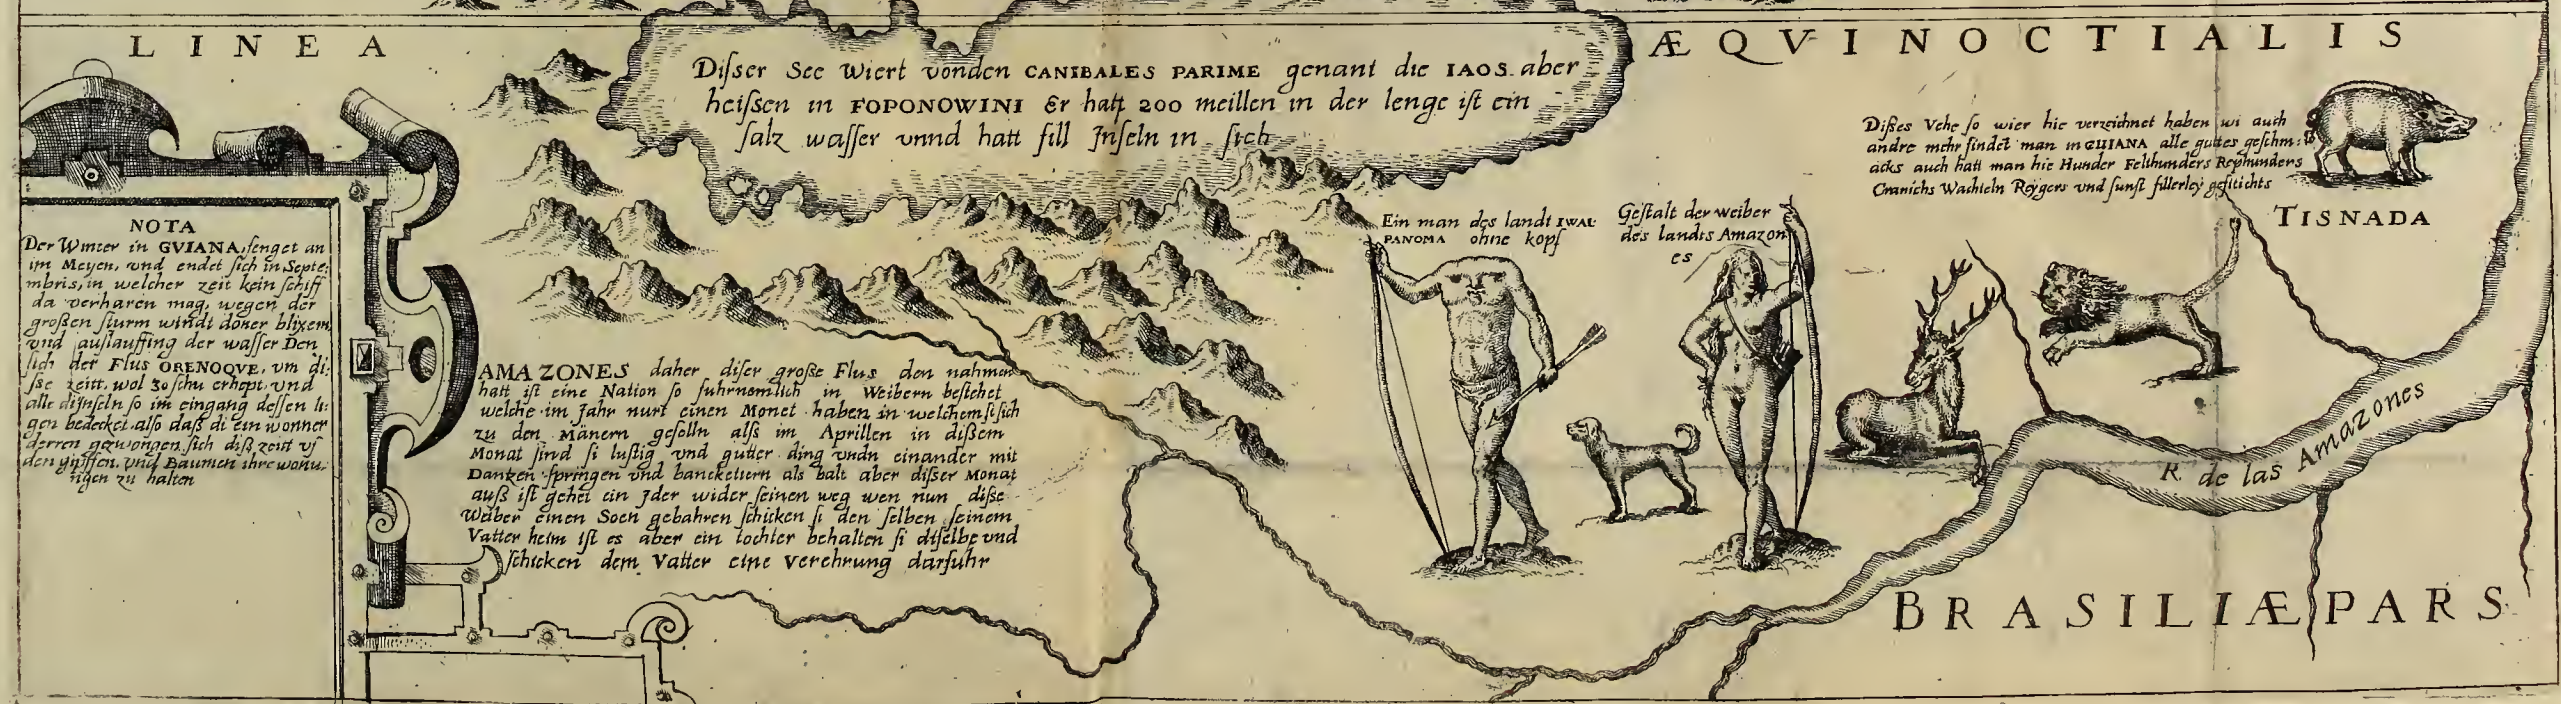 LINEA
ÆQVINOCTIALIS
Diſser See Wiert vonden CANIBALES PARIME genant die IAOS aber
heiſsen in FOPONOWINI Er hatt 200 meillen in der lenge iſt ein
ſalz waſſer vnnd hatt fill Jnſeln in ſich
Diſses Vehe ſo wier hie verzeichnet haben wi auch
andre mehr findet man in GUIANA alle guttes geſchm:
acks auch hatt man hie Hunder Felthunders Rephunders
Cranichs Wachteln Reygers vnd ſunſt fillerley gefitichts
TISNADA
NOTA
Der Winter in GVIANA, fenget an
im Meyen, vnd endet ſich in Septe:
mbris, in welcher zeit kein ſchiff
da verharen mag, wegen der
großen ſturm windt doner blixem
vnd auſlauffing der waſſer Den
ſich der Flus ORENOQVE, vm di:
ſse zeitt, wol 30 ſchu erhopt, vnd
alle dijnſeln ſo im eingang deſſen li:
gen bedecket alſo daß di ein wonner
derren gezwongen ſich diß zeitt vf
den gipffen vnd Baumen ihre wonu:
ngen zu halten
Ein man des landt IWAI:
PANOMA ohne kopf
Geſtalt der weiber
des landts Amazon
es
AMAZONES daher diſer große Flus den nahmen
hatt iſt eine Nation ſo fuhrnemlich in Weibern beſtehet
welche im Jahr nurt einen Monet haben in welchem ſi ſich
zu den Mänern geſelln alſs im Aprillen in dißem
Monat ſind ſi luſtig vnd gutter ding vndn einander mit
Dantzen ſpringen vnd bancketiern als balt aber diſser Monat
auß iſt gehet ein Jder wider ſeinen weg wen nun diſse
Weiber einen Soen gebahren ſchicken ſi den ſelben ſeinem
Vatter heim iſt es aber ein tochter behalten ſi diſelbe vnd
ſchicken dem Vatter eine Verehrung darfuhr
R. de las Amazones
BRASILIÆ PARS